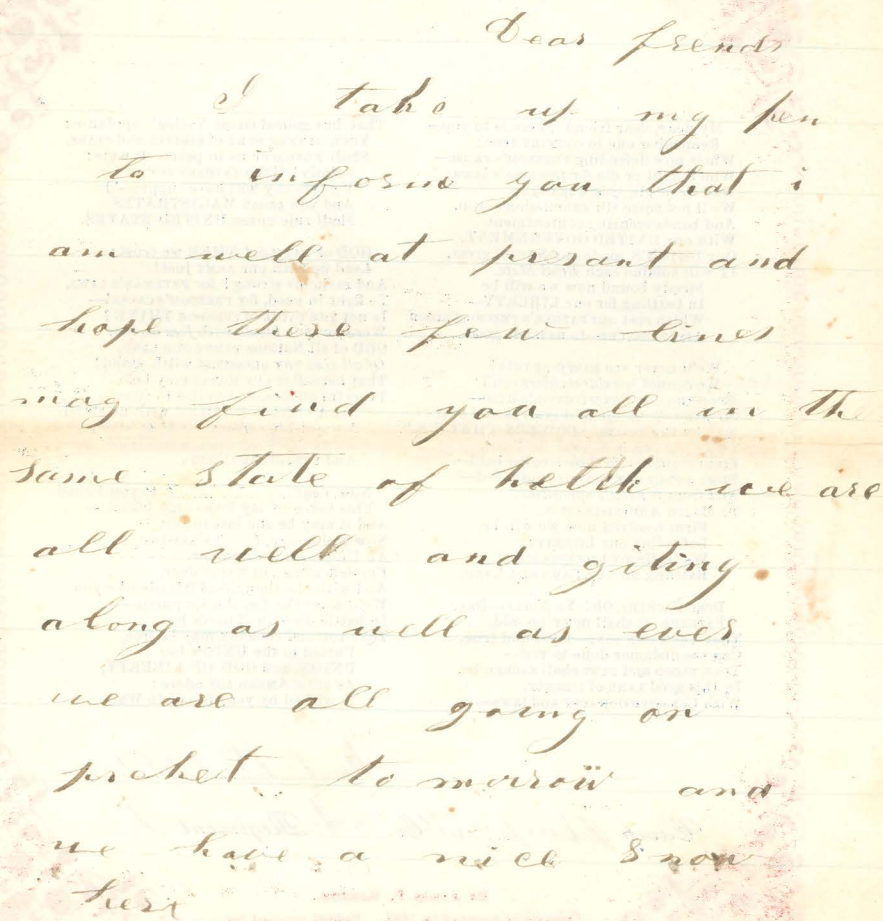 Dear frends
I take up my pen
to informe you that i
am well at presant and
hope these few lines
may find you all in the
same state of helth we are
all well and giting
along as well as ever
we are all going on
picket to morrow and
we have a nice snow
here